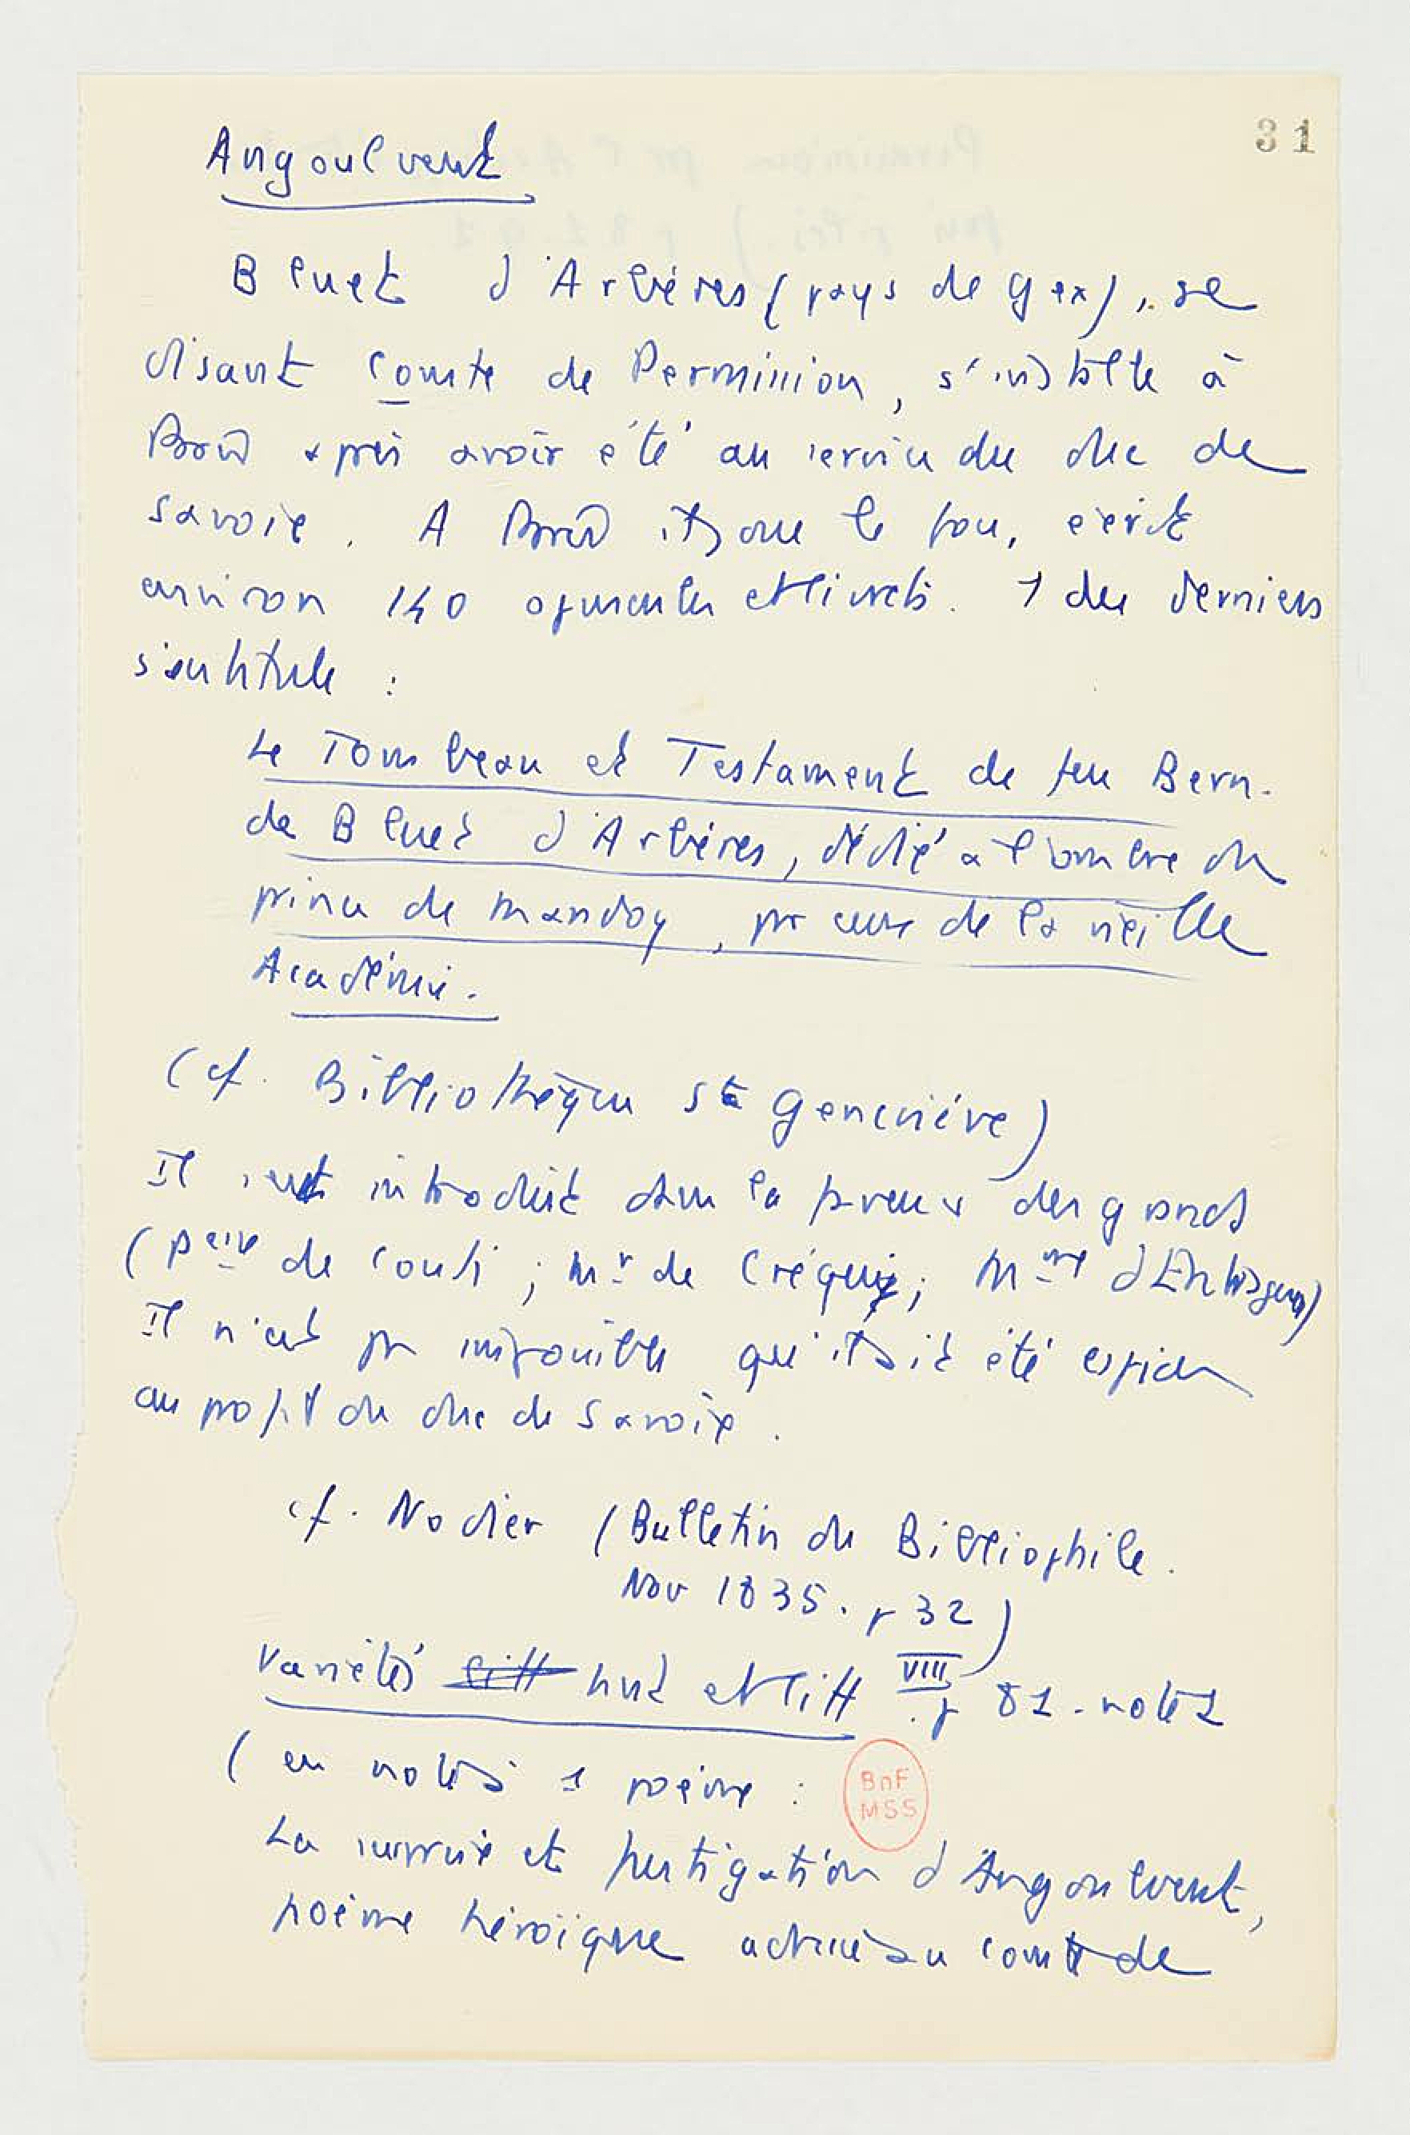 31
Angoulvent
Bluet d'Arbères (pays de Gex), se
disant comte de Permission, s'installe à
Paris après avoir été au service du duc de
Savoie. A Paris il joue le fou, écrit
environ 140 opuscules et livrets. 1 des derniers
s'intitule :
Le Tombeau et Testament de feu Bern.
de Bluet d'Arbères, dédié à l'ombre du
prince de Mandoy, par ceux de la vieille
Académie.
(cf. Bibliothèque Ste Geneviève)
Il s'est introduit dans la faveur des grands
(Pce de Conti ; Mr de Créquy ; Mme d'Entragues)
Il n'est pas impossible qu'il ait été espion
au profit du duc de Savoie.
cf. Nodier (Bulletin du Bibliophile.
Nov 1835. p 32)
Variétés hist et litt VIII p 81 - note 2
(en note 1 poème :
La surprise et fustigation d'Angoulvent,
poème héroïque adressé au comte de
BnF
MSS